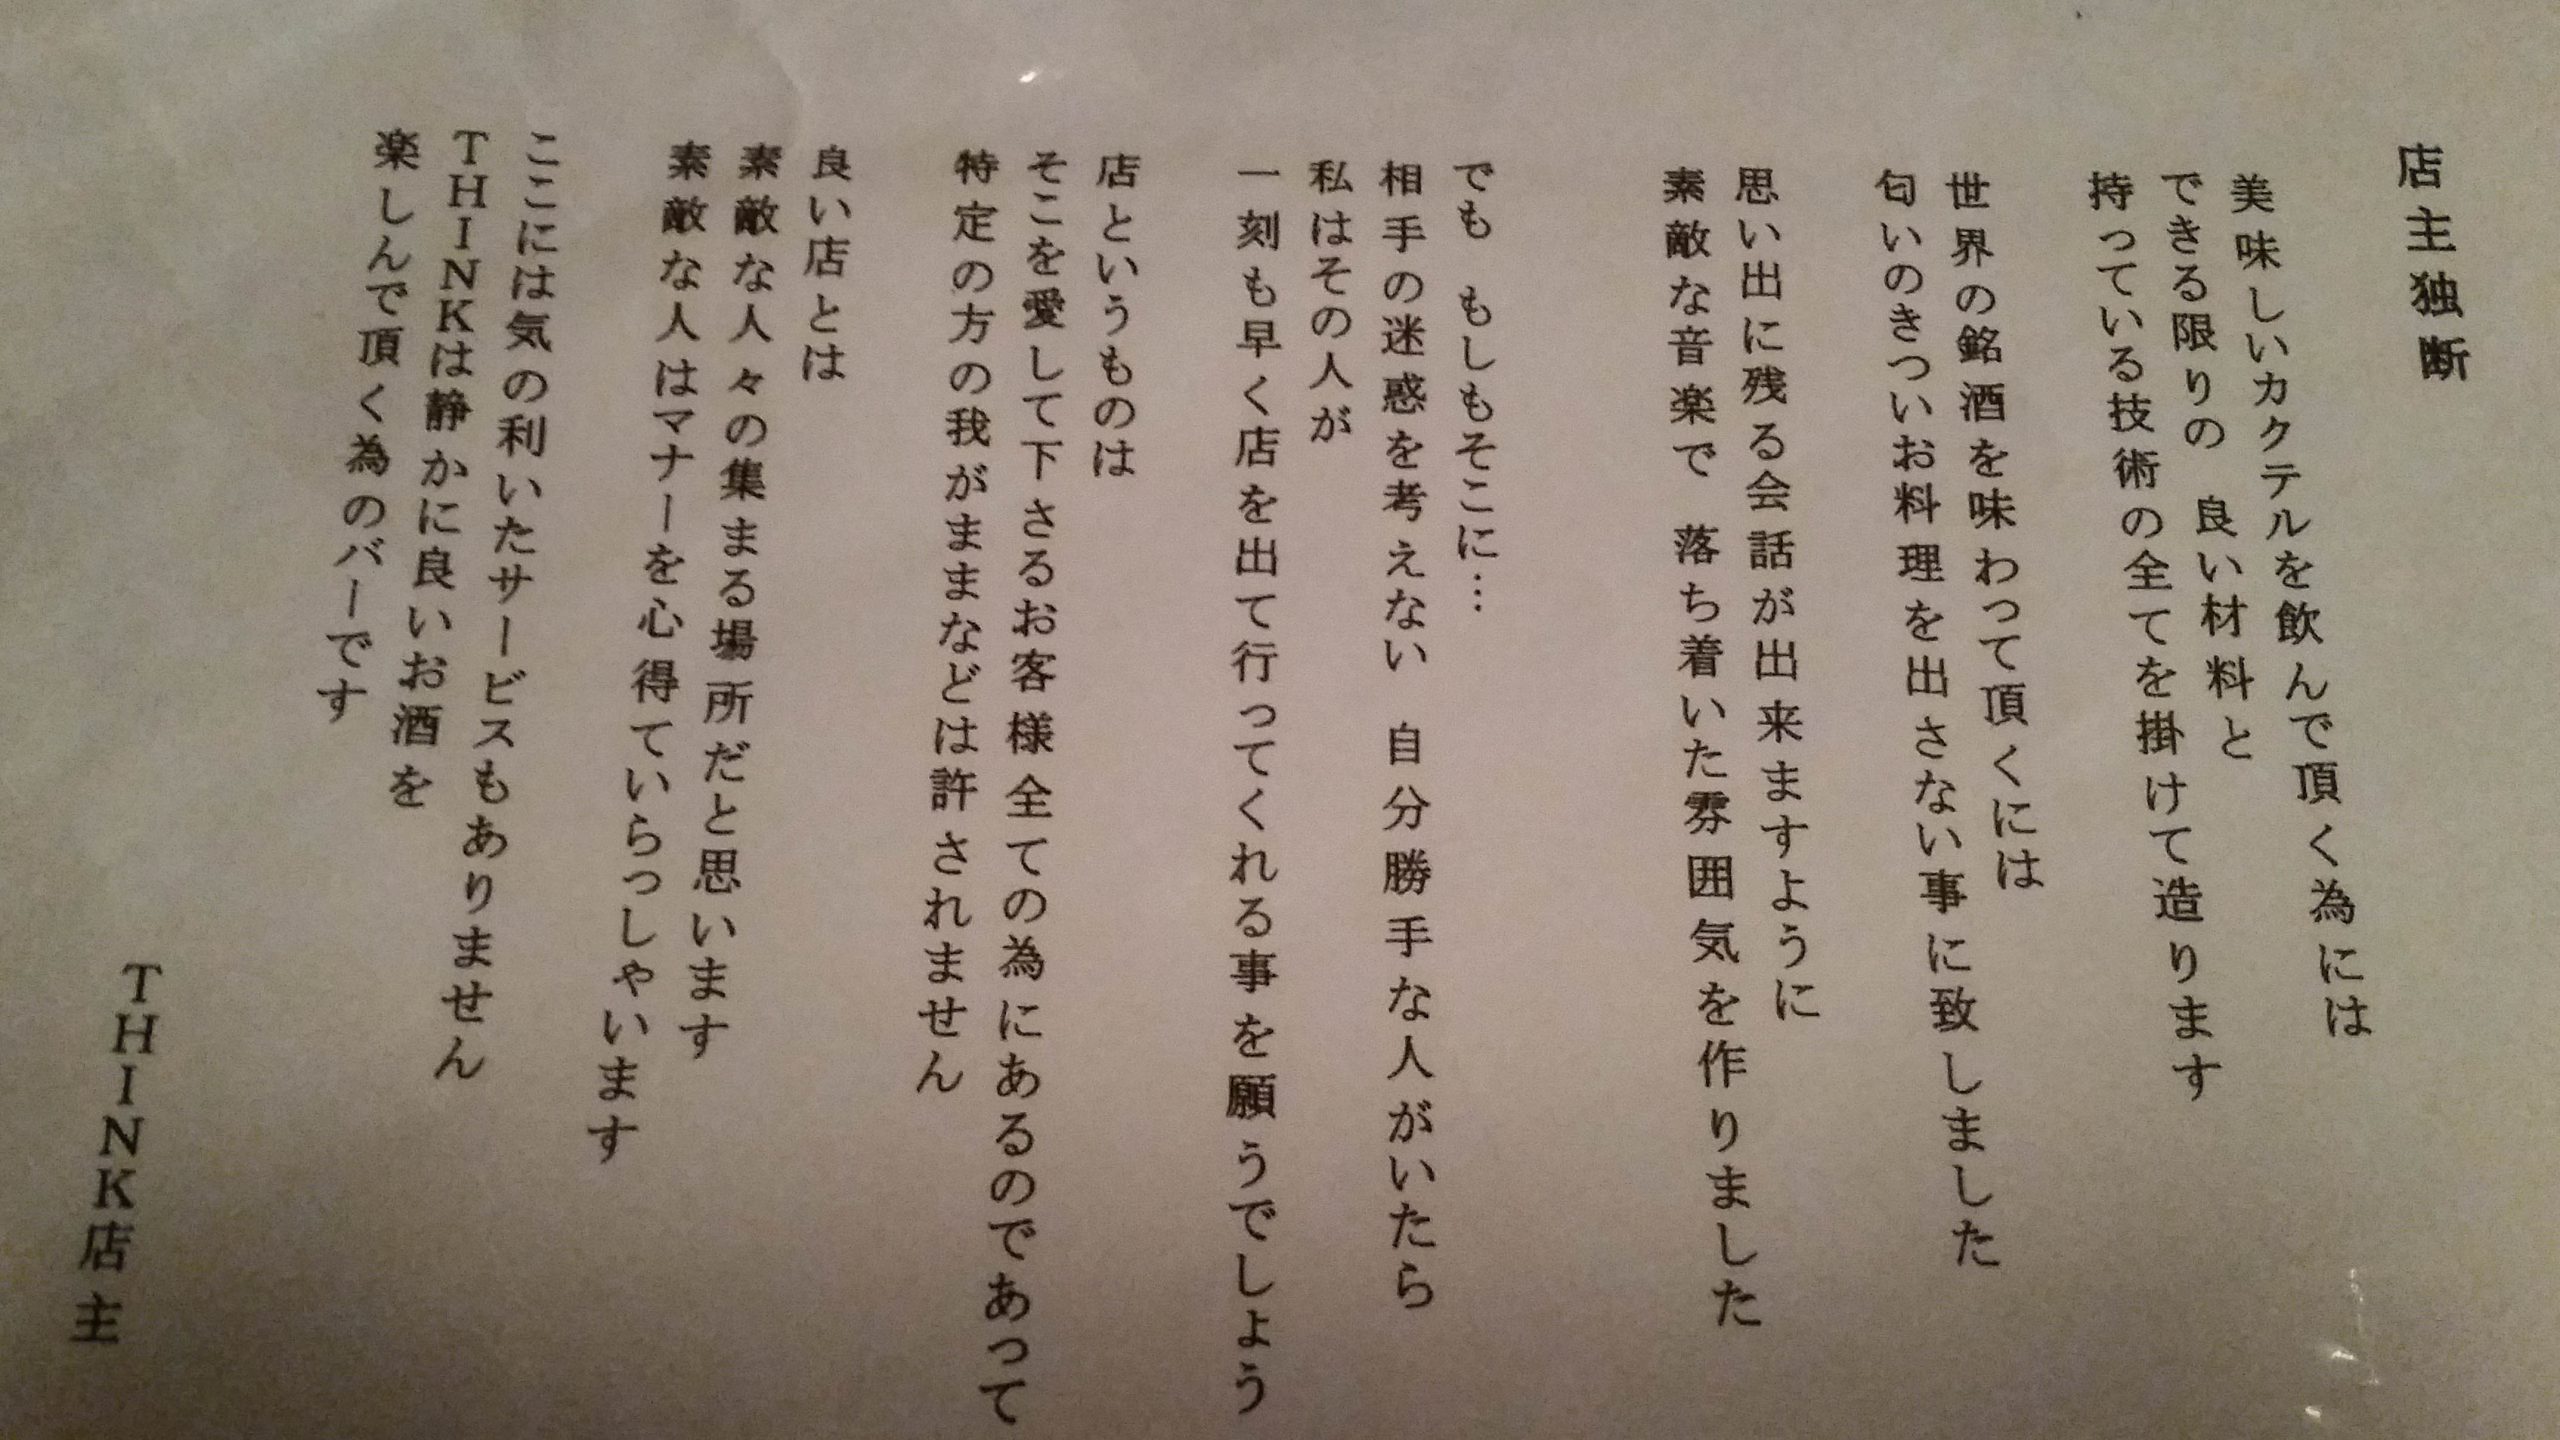 店主独断
美味しいカクテルを飲んで頂く為には
できる限りの　良い材料と
持っている技術の全てを掛けて造ります
世界の銘酒を味わって頂くには
匂いのきついお料理を出さない事に致しました
思い出に残る会話が出来ますように
素敵な音楽で　落ち着いた雰囲気を作りました
でも　もしもそこに…
相手の迷惑を考えない　自分勝手な人がいたら
私はその人が
一刻も早く店を出て行ってくれる事を願うでしょう
店というものは
そこを愛して下さるお客様全ての為にあるのであって
特定の方の我がままなどは許されません
良い店とは
素敵な人々の集まる場所だと思います
素敵な人はマナーを心得ていらっしゃいます
ここには気の利いたサービスもありません
THINKは静かに良いお酒を
楽しんで頂く為のバーです
THINK店主